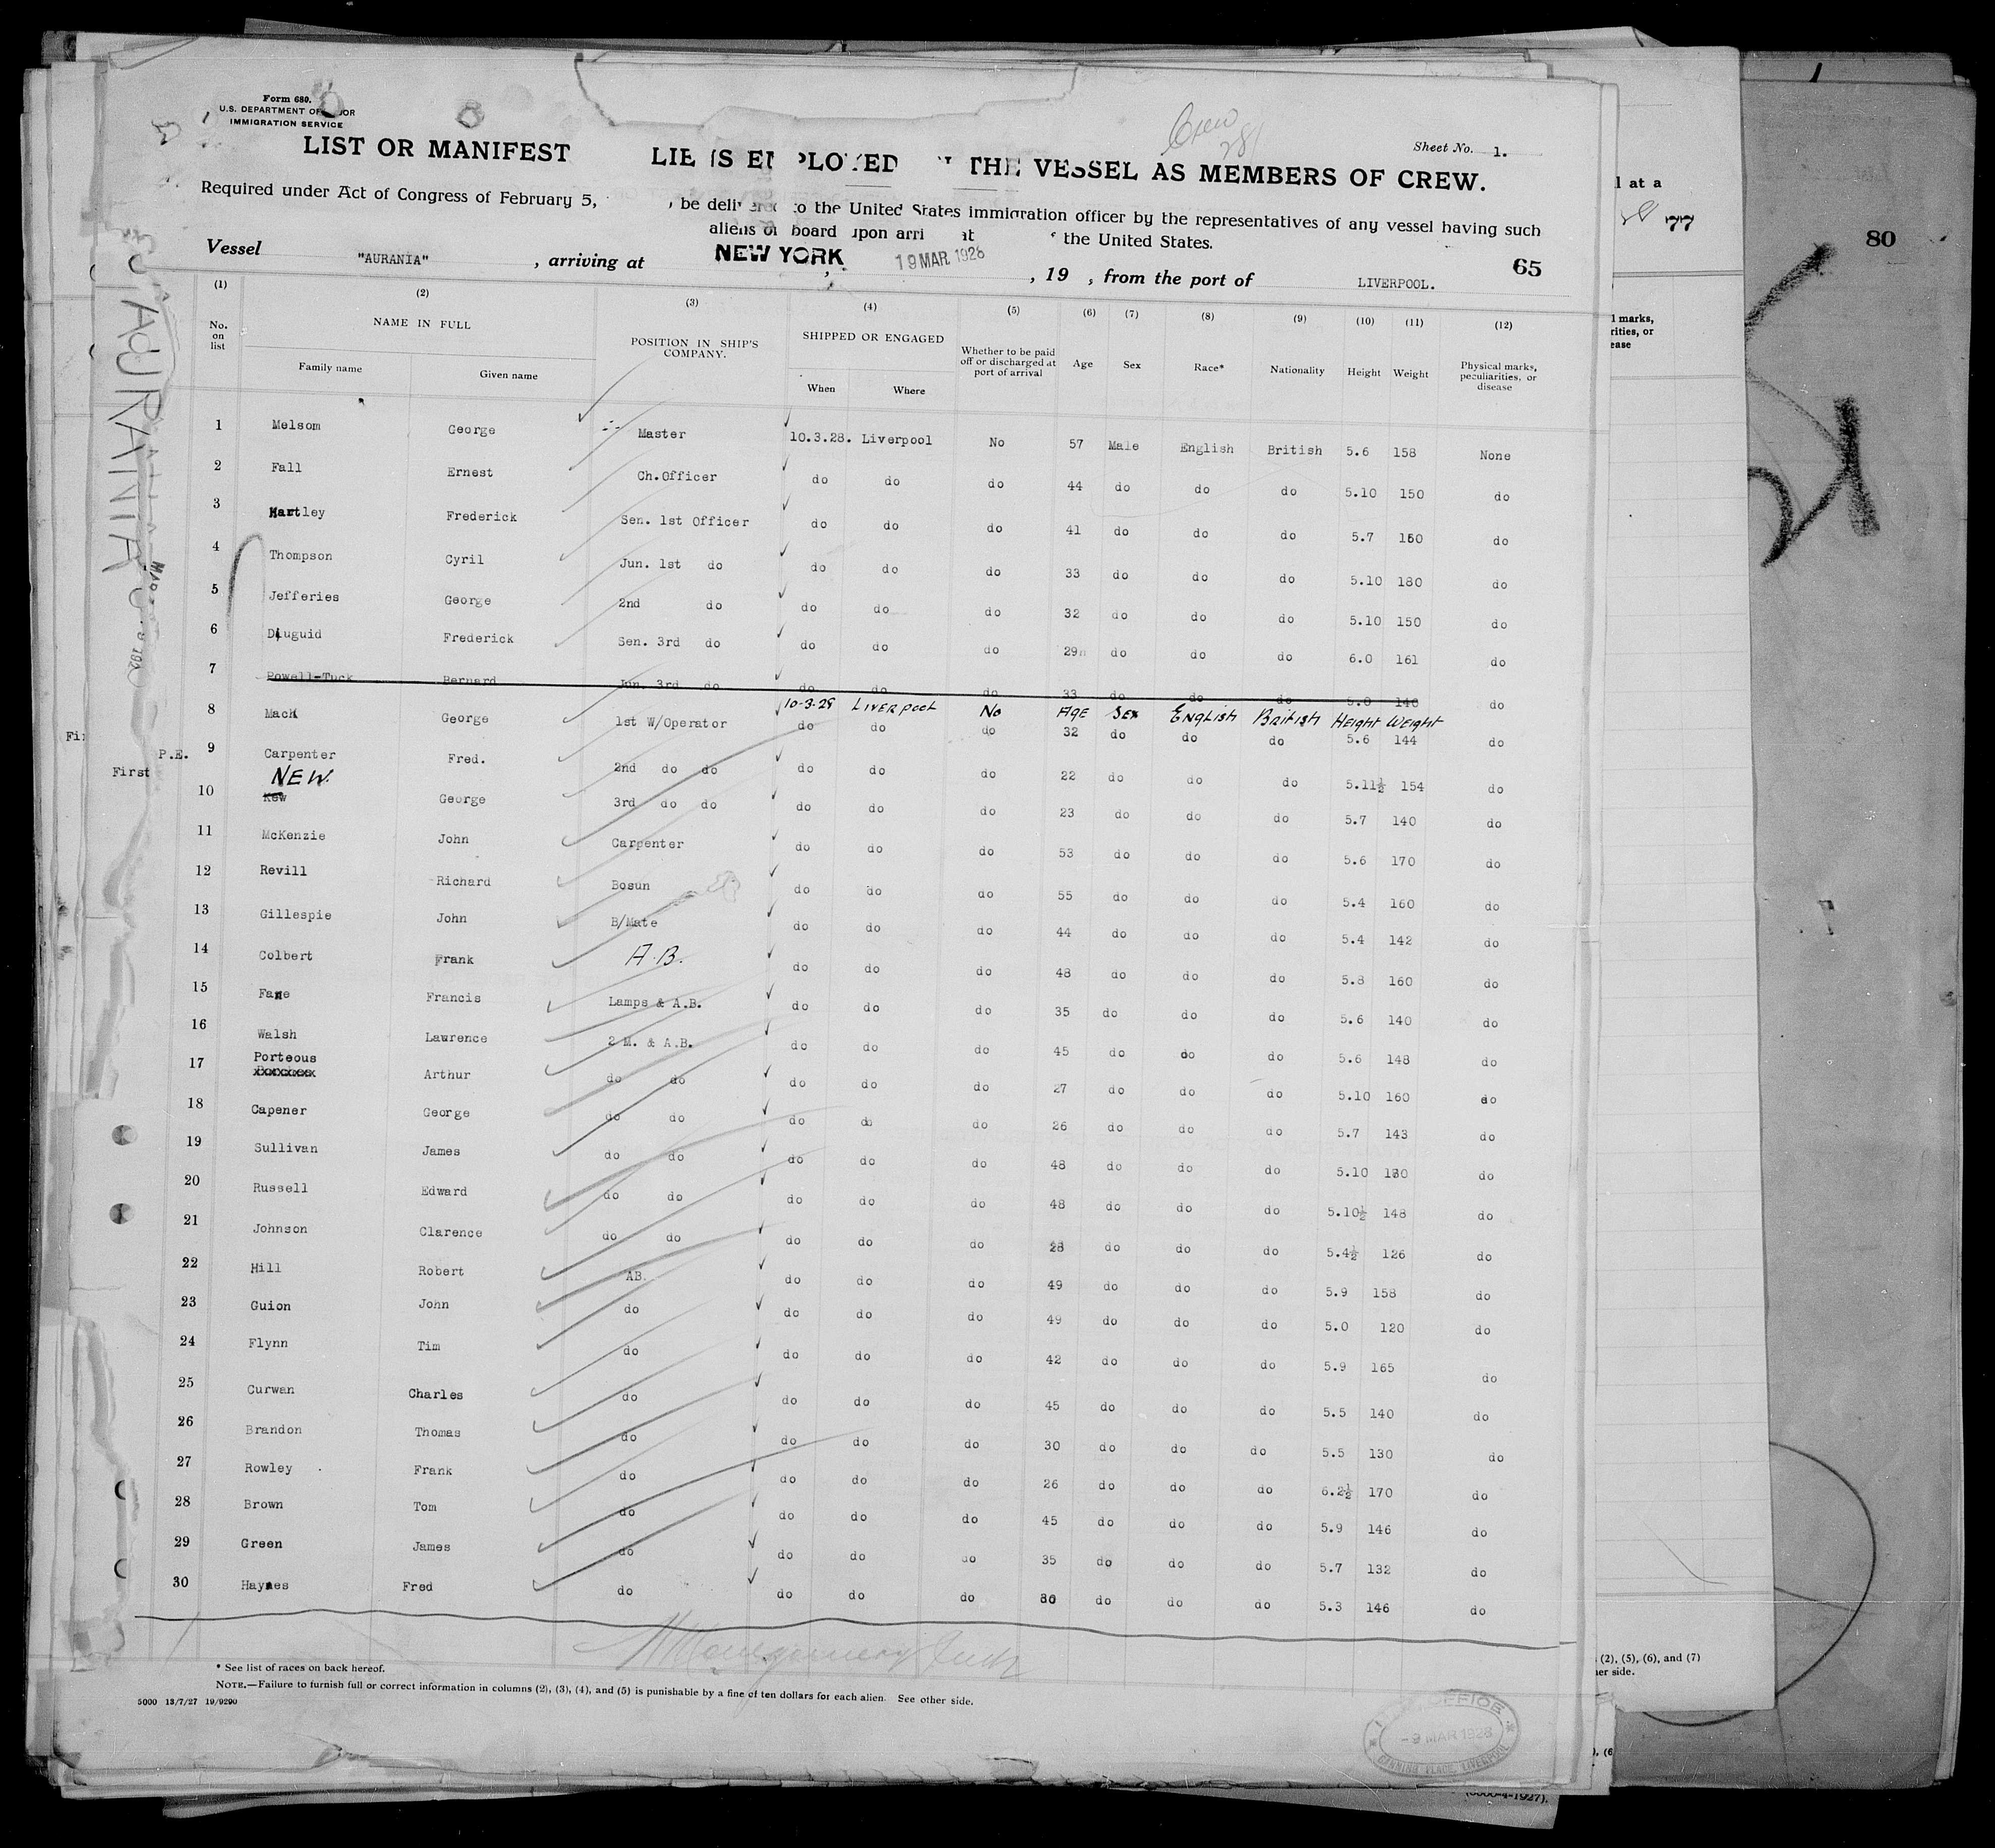 Form 680.
U.S. DEPARTMENT OF
IMMIGRATION SERVICE
Crew
281
Sheet No. 1.
LIST OR MANIFEST THE VESSEL AS MEMBERS OF CREW.
Required under Act of Congress of February 5, be delivered to the United States immigration officer by the representatives of any vessel having such
aliens on board upon the United States.
Vessel "AURANIA", arriving at NEW YORK, 19 MAR 1928, 19 , from the port of LIVERPOOL.
65
l at a
77
80
AURANIA
(1) (2) (3) (4) (5) (6) (7) (8) (9) (10) (11) (12)
No. on list NAME IN FULL POSITION IN SHIP'S COMPANY. SHIPPED OR ENGAGED Whether to be paid off or discharged at port of arrival Age Sex Race* Nationality Height Weight Physical marks, peculiarities, or disease
Family name Given name When Where
1 Melsom George Master 10.3.28. Liverpool No 57 Male English British 5.6 158 None
2 Fall Ernest Ch.Officer do do do 44 do do do 5.10 150 do
3 Hartley Frederick Sen. 1st Officer do do do 41 do do do 5.7 do
4 Thompson Cyril Jun. 1st do do do do 33 do do do 5.10 180 do
5 Jefferies George 2nd do do do do 32 do do do 5.10 150 do
6 Duguid Frederick Sen. 3rd do do do do 29 do do do 6.0 161 do
7 Powell-Tuck Bernard Jun. 3rd do do do do 33 do do do 140 do
10-3-28 LIVERPOOL No AGE SEX ENGLISH BRITISH HEIGHT WEIGHT
8 Mack George 1st W/Operator do do do 32 do do do 5.6 144 do
P.E. 9 Carpenter Fred. 2nd do do do do do 22 do do do 5.11½ 154 do
First
NEW
10 Kew George 3rd do do do do do 23 do do do 5.7 140 do
11 McKenzie John Carpenter do do do 53 do do do 5.6 170 do
12 Revill Richard Bosun do do do 55 do do do 5.4 160 do
13 Gillespie John B/Mate do do do 44 do do do 5.4 142 do
14 Colbert Frank A.B. do do do 48 do do do 5.8 160 do
15 Fane Francis Lamps & A.B. do do do 35 do do do 5.6 140 do
16 Walsh Lawrence 2 M. & A.B. do do do 45 do do do 5.6 148 do
17 Porteous Arthur do do do do do 27 do do do 5.10 160 do
18 Capener George do do do do do 26 do do do 5.7 143 do
19 Sullivan James do do do do do 48 do do do 5.10 do
20 Russell Edward do do do do do 48 do do do 5.10½ 148 do
21 Johnson Clarence do do do do do do do do 5.4½ 126 do
22 Hill Robert AB. do do do 49 do do do 5.9 158 do
23 Guion John do do do do 49 do do do 5.0 120 do
24 Flynn Tim do do do do 42 do do do 5.9 165 do
25 Curwan Charles do do do do 45 do do do 5.5 140 do
26 Brandon Thomas do do do do 30 do do do 5.5 130 do
27 Rowley Frank do do do do 26 do do do 6.2½ 170 do
28 Brown Tom do do do do 45 do do do 5.9 146 do
29 Green James do do do do 35 do do do 5.7 132 do
30 Haynes Fred do do do do do do do 5.3 146 do
* See list of races on back hereof.
NOTE.—Failure to furnish full or correct information in columns (2), (3), (4), and (5) is punishable by a fine of ten dollars for each alien. See other side.
5000 13/7/27 19/9290
OFFICE
9 MAR 1928
CANNING PLACE LIVERPOOL
l marks,
rities, or
ease
(2), (5), (6), and (7)
er side.